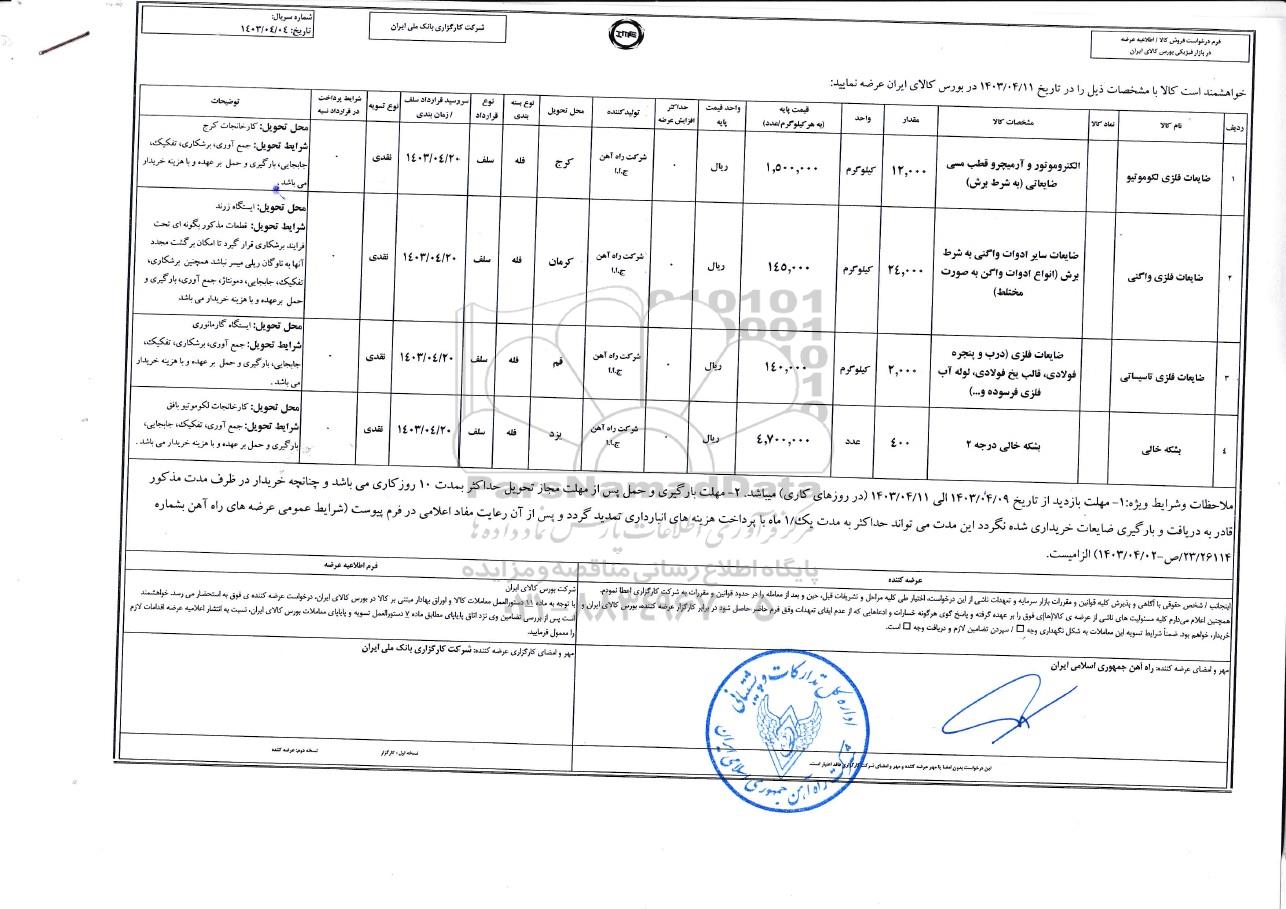 شماره سریال:
تاریخ: ۱۴۰۳/۰۴/۰۴
شرکت کارگزاری بانک ملی ایران
IME
فرم درخواست فروش کالا / اطلاعیه عرضه
در بازار فیزیکی بورس کالای ایران
خواهشمند است کالا با مشخصات ذیل را در تاریخ ۱۴۰۳/۰۴/۱۱ در بورس کالای ایران عرضه نمایید:
ردیف
نام کالا
نماد کالا
مشخصات کالا
مقدار
واحد
قیمت پایه
(به هر کیلوگرم/عدد)
واحد قیمت
پایه
حداکثر
افزایش عرضه
تولیدکننده
محل تحویل
نوع بسته
بندی
نوع
قرارداد
سررسید قرارداد سلف
/ زمان بندی
نوع تسویه
شرایط پرداخت
در قرارداد نسیه
توضیحات
۱
ضایعات فلزی لکوموتیو
الکتروموتور و آرمیچرو قطب مسی
ضایعاتی (به شرط برش)
۱۲,۰۰۰
کیلوگرم
۱,۵۰۰,۰۰۰
ریال
۰
شرکت راه آهن
ج.ا.ا
کرج
فله
سلف
۱۴۰۳/۰۴/۲۰
نقدی
۰
محل تحویل: کارخانجات کرج
شرایط تحویل: جمع آوری، برشکاری، تفکیک،
جابجایی، بارگیری و حمل بر عهده و با هزینه خریدار
می باشد.
۲
ضایعات فلزی واگنی
ضایعات سایر ادوات واگنی به شرط
برش (انواع ادوات واگن به صورت
مختلط)
۲۴,۰۰۰
کیلوگرم
۱۴۵,۰۰۰
ریال
۰
شرکت راه آهن
ج.ا.ا
کرمان
فله
سلف
۱۴۰۳/۰۴/۲۰
نقدی
۰
محل تحویل: ایستگاه زرند
شرایط تحویل: قطعات مذکور بگونه ای تحت
فرایند برشکاری قرار گیرد تا امکان برگشت مجدد
آنها به ناوگان ریلی میسر نباشد همچنین برشکاری،
تفکیک، جابجایی، دمونتاژ، جمع آوری، بارگیری و
حمل برعهده و با هزینه خریدار می باشد
۳
ضایعات فلزی تاسیساتی
ضایعات فلزی (درب و پنجره
فولادی، قالب یخ فولادی، لوله آب
فلزی فرسوده و...)
۲,۰۰۰
کیلوگرم
۱۴۰,۰۰۰
ریال
۰
شرکت راه آهن
ج.ا.ا
قم
فله
سلف
۱۴۰۳/۰۴/۲۰
نقدی
۰
محل تحویل: ایستگاه گارمانوری
شرایط تحویل: جمع آوری، برشکاری، تفکیک،
جابجایی، بارگیری و حمل بر عهده و با هزینه خریدار
می باشد .
۴
بشکه خالی
بشکه خالی درجه ۲
۴۰۰
عدد
۴,۷۰۰,۰۰۰
ریال
۰
شرکت راه آهن
ج.ا.ا
یزد
فله
سلف
۱۴۰۳/۰۴/۲۰
نقدی
۰
محل تحویل: کارخانجات لکوموتیو بافق
شرایط تحویل: جمع آوری، تفکیک، جابجایی،
بارگیری و حمل بر عهده و با هزینه خریدار می باشد .
ملاحظات وشرایط ویژه:۱- مهلت بازدید از تاریخ ۱۴۰۳/۰۴/۰۹ الی ۱۴۰۳/۰۴/۱۱ (در روزهای کاری) میباشد. ۲- مهلت بارگیری و حمل پس از مهلت مجاز تحویل حداکثر بمدت ۱۰ روزکاری می باشد و چنانچه خریدار در ظرف مدت مذکور
قادر به دریافت و بارگیری ضایعات خریداری شده نگردد این مدت می تواند حداکثر به مدت یک/۱ ماه با پرداخت هزینه های انبارداری تمدید گردد و پس از آن رعایت مفاد اعلامی در فرم پیوست (شرایط عمومی عرضه های راه آهن بشماره
۲۳/۲۶۱۱۴/ص-۱۴۰۳/۰۴/۰۲) الزامیست.
ParsNamadData
مرکز فرآوری اطلاعات پارس نماد داده ها
پایگاه اطلاع رسانی مناقصه و مزایده
عرضه کننده
اینجانب / شخص حقوقی با آگاهی و پذیرش کلیه قوانین و مقررات بازار سرمایه و تعهدات ناشی از این درخواست، اختیار طی کلیه مراحل و تشریفات قبل، حین و بعد از معامله را در حدود قوانین و مقررات به شرکت کارگزاری اعطا نمودم.
همچنین اعلام می‌دارم کلیه مسئولیت های ناشی از عرضه ی کالا(ها)ی فوق را بر عهده گرفته و پاسخ گوی هرگونه خسارات و ادعاهایی که از عدم ایفای تعهدات وفق فرم حاضر حاصل شود در برابر کارگزار عرضه کننده، بورس کالای ایران و
خریدار، خواهم بود. ضمناً شرایط تسویه این معاملات به شکل نگهداری وجه □ / سپردن تضامین لازم و دریافت وجه □ است.
مهر و امضای عرضه کننده: راه آهن جمهوری اسلامی ایران
فرم اطلاعیه عرضه
شرکت بورس کالای ایران
با توجه به ماده ۱۱ دستورالعمل معاملات کالا و اوراق بهادار مبتنی بر کالا در بورس کالای ایران، درخواست عرضه کننده ی فوق به استحضار می رسد. خواهشمند
است پس از بررسی تضامین وی نزد اتاق پایاپای مطابق ماده ۷ دستورالعمل تسویه و پایاپای معاملات بورس کالای ایران، نسبت به انتشار اعلامیه عرضه اقدامات لازم
را معمول فرمایید.
مهر و امضای کارگزاری عرضه کننده: شرکت کارگزاری بانک ملی ایران
اداره کل تدارکات و پشتیبانی
شرکت راه آهن جمهوری اسلامی ایران
این درخواست بدون امضا یا مهر عرضه کننده و مهر و امضای شرکت کارگزاری فاقد اعتبار است.
نسخه اول: کارگزار
نسخه دوم: عرضه کننده